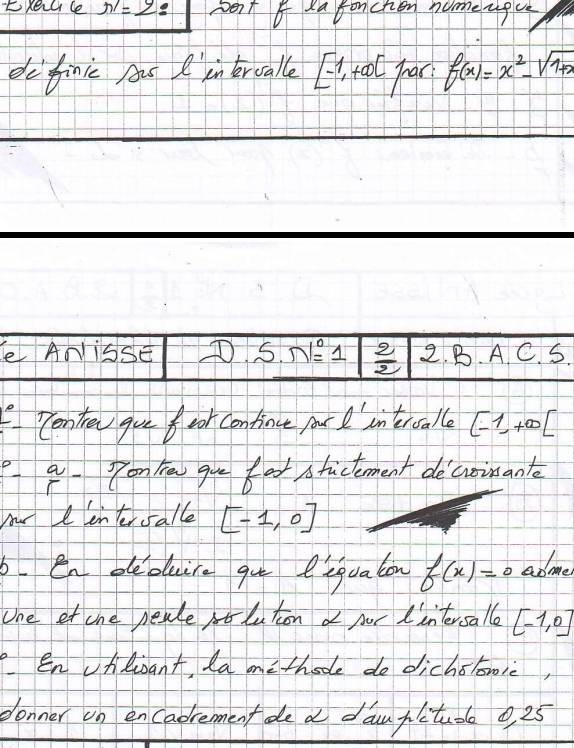 Exercice n°=2: Soit f la fonction numerique
définie sur l'intervalle [-1,+∞[ par: f(x)= x² - √1+x
ANISSE D.S.N°=1 2/2 2.B.A.C.S.
1°- Montrer que f est continue sur l'intervalle [-1,+∞[
a - Montrer que f est strictement décroissante
sur l'intervalle [-1,0]
b - En déduire que l'équation f(x)=0 admet
une et une seule solution α sur l'intervalle [-1,0]
En utilisant, la méthode de dichotomie,
donner un encadrement de α d'amplitude 0,25